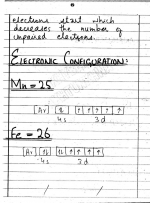 electrons start which
decreases the number of
unpaired electrons.
ELECTRONIC CONFIGURATION:
Mn = 25
[Ar] [↑↓] [↑ ↑ ↑ ↑ ↑]
4s 3d
Fe = 26
[Ar] [↑↓] [↑↓ ↑ ↑ ↑ ↑]
4s 3d